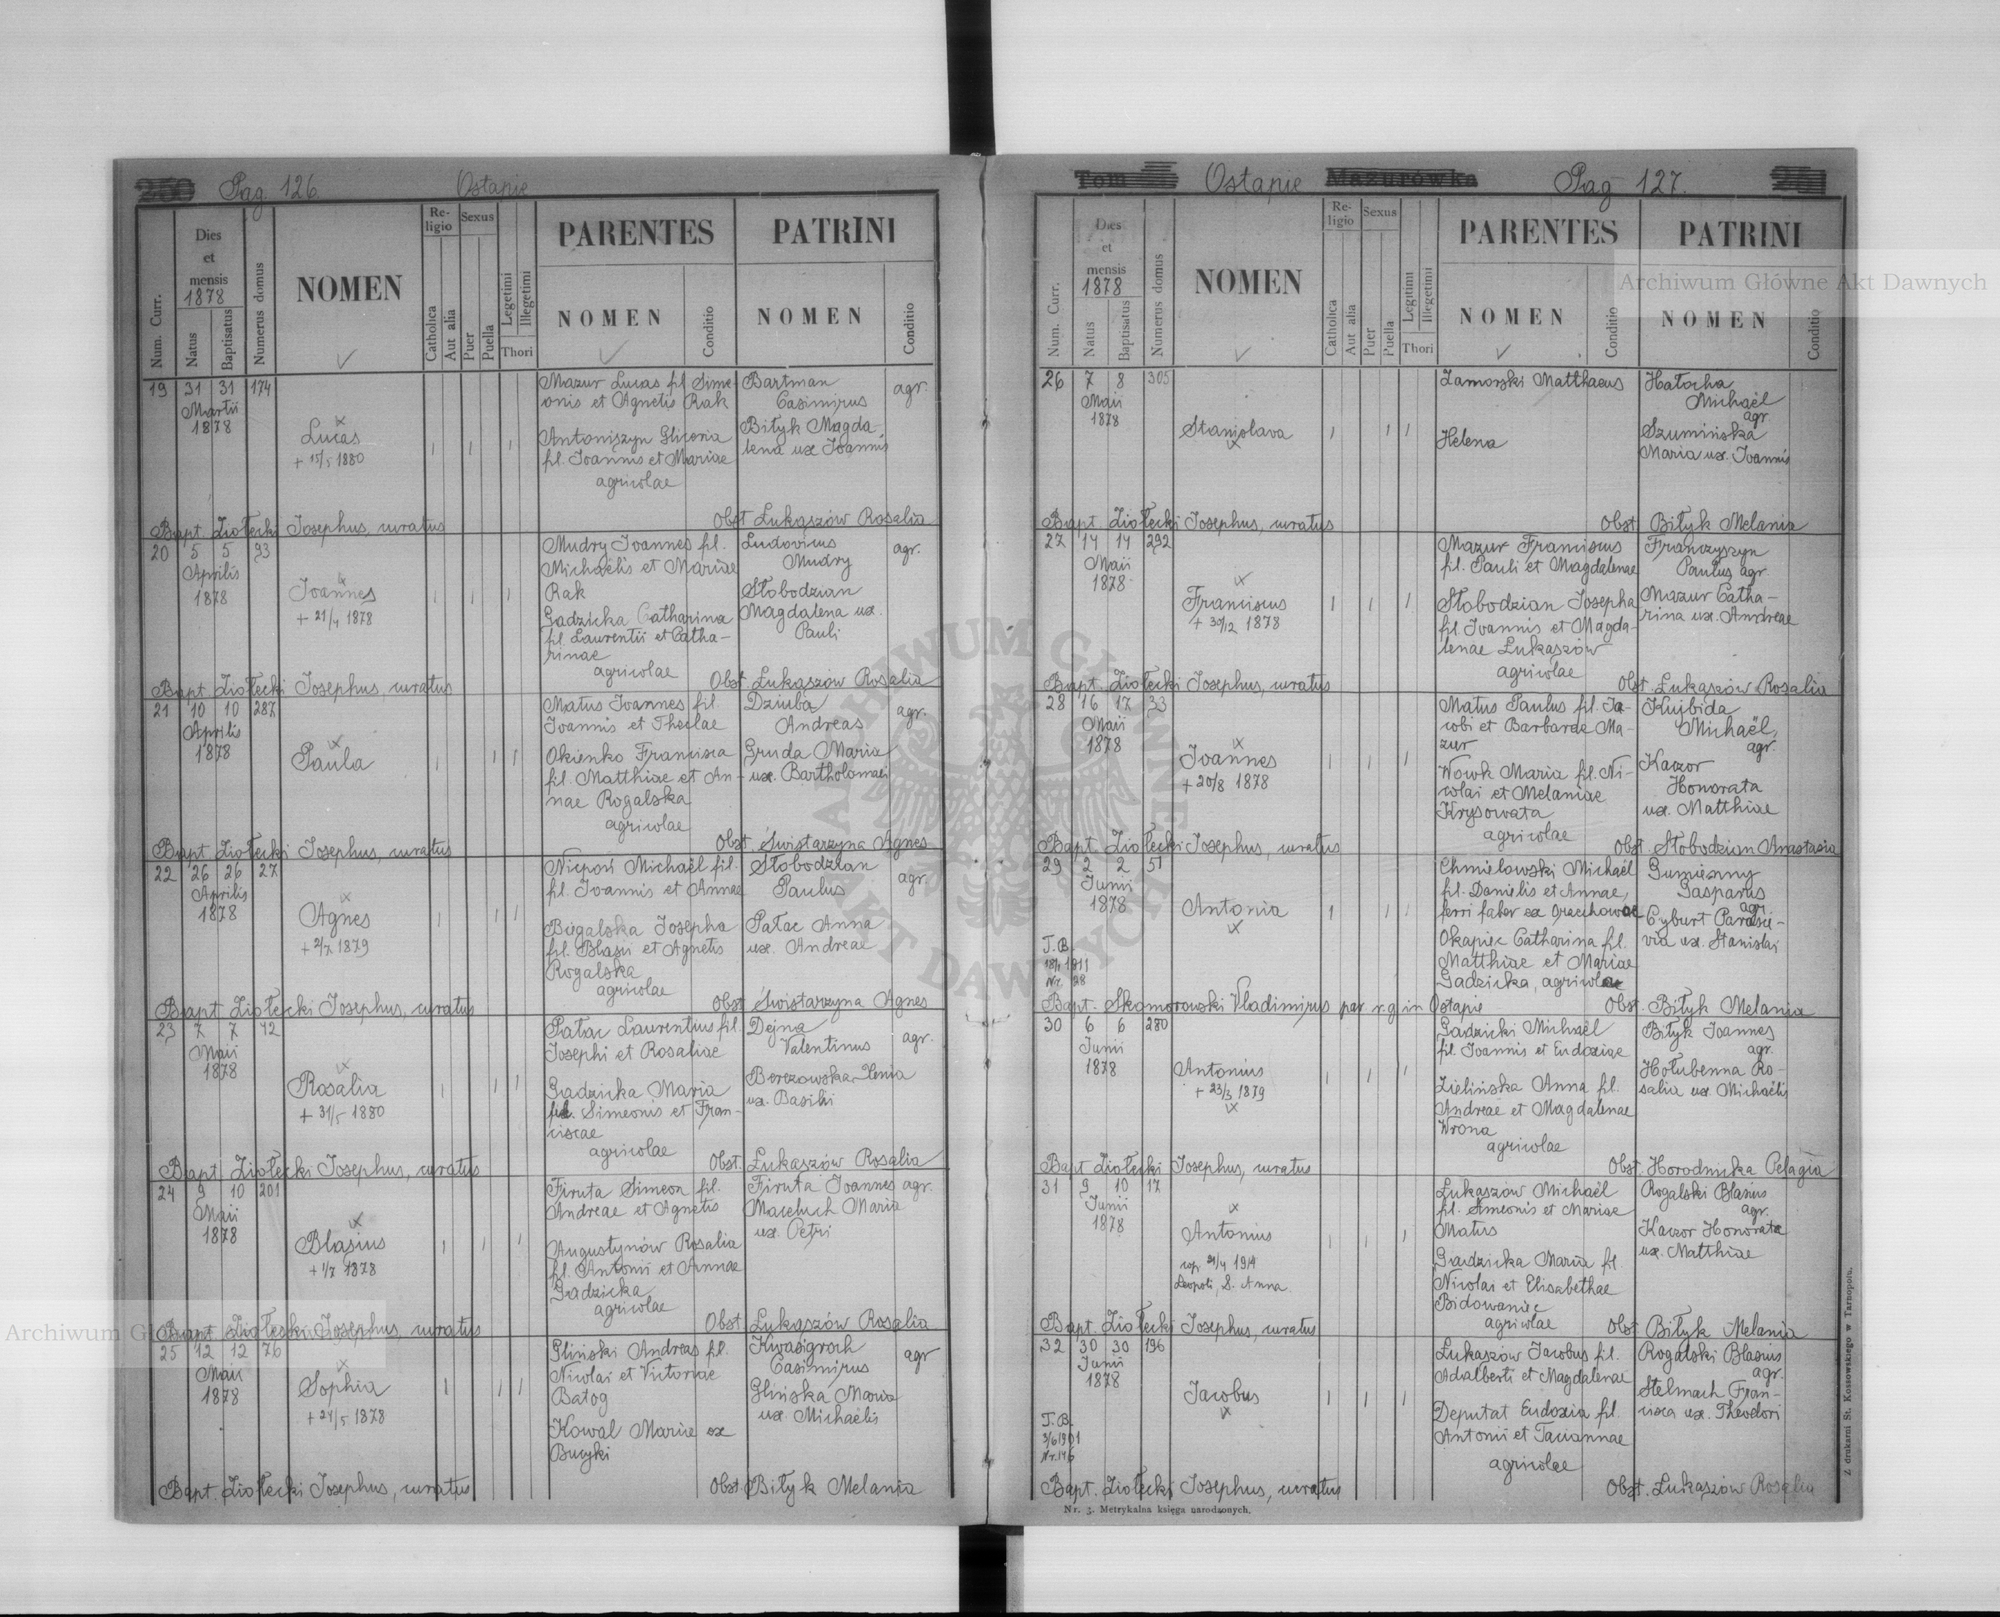 Pag. 126.
Ostapie
Num. Curr.
Dies et mensis
1878
Natus
Baptisatus
Numerus domus
NOMEN
Religio
Catholica
Aut alia
Sexus
Puer
Puella
Legetimi
Illegetimi
Thori
PARENTES
NOMEN
Conditio
PATRINI
NOMEN
Conditio
19 31 31 174
Martii
1878
Lucas
+ 15/5 1880
Mazur Lucas fil Sime-
onis et Agnetis Rak
Antoniszyn Gliceria
fil. Joannis et Mariae
agricolae
Bartman
Casimirus
agr.
Biłyk Magda-
lena ux Joannis
Bapt. Ziołecki Josephus, curatus
Obst Łukaszów Rosalia
20 5 5 93
Aprilis
1878
Joannes
+ 21/4 1878
Mudry Joannes fil.
Michaelis et Mariae
Rak
Gadzicka Catharina
fil Laurentii et Catha-
rinae
agricolae
Ludovicus
Mudry
agr.
Słobodzian
Magdalena ux.
Pauli
Bapt. Ziołecki Josephus, curatus
Obst. Łukaszów Rosalia
21 10 10 287
Aprilis
1878
Paula
Matus Joannes fil.
Joannis et Theclae
Okienko Francisca
fil. Matthiae et An-
nae Rogalska
agricolae
Dziuba
Andreas
agr.
Gruda Maria
ux. Bartholomaei
Bapt. Ziołecki Josephus, curatus
Obst. Świstarzyna Agnes
22 26 26 27
Aprilis
1878
Agnes
+ 2/7 1879
Niepoń Michaël fil.
fil. Joannis et Annae
Bugalska Josepha
fil. Blasii et Agnetis
Rogalska
agricolae
Słobodzian
Paulus
agr.
Pałac Anna
ux. Andreae
Bapt. Ziołecki Josephus, curatus
Obst. Świstarzyna Agnes
23 7 7 42
Maii
1878
Rosalia
+ 31/5 1880
Pałac Laurentius fil.
Josephi et Rosaliae
Gadzicka Maria
fil. Simeonis et Fran-
ciscae
agricolae
Dejna
Valentinus
agr.
Berezowska Xenia
ux. Basilii
Bapt. Ziołecki Josephus, curatus
Obst. Łukaszów Rosalia
24 9 10 201
Maii
1878
Blasius
+ 1/7 1878
Firuta Simeon fil.
Andreae et Agnetis
Augustynów Rosalia
fil. Antonii et Annae
Gadzicka
agricolae
Firuta Joannes agr.
Maceluch Maria
ux. Petri
Bapt. Ziołecki Josephus, curatus
Obst. Łukaszów Rosalia
25 12 12 76
Maii
1878
Sophia
+ 24/5 1878
Gliński Andreas fil.
Nicolai et Victoriae
Batog
Kowal Maria ex
Bucyki
Kwasigroch
Casimirus
agr
Glińska Maria
ux. Michaëlis
Bapt. Ziołecki Josephus, curatus
Obst. Biłyk Melania
Tom
Ostapie
Mazurówka
Pag 127.
Num. Curr.
Dies et mensis
1878
Natus
Baptisatus
Numerus domus
NOMEN
Religio
Catholica
Aut alia
Sexus
Puer
Puella
Legitimi
Illegetimi
Thori
PARENTES
NOMEN
Conditio
PATRINI
NOMEN
Conditio
26 7 8 305
Maii
1878
Stanislava
Zamorski Matthaeus
Helena
Hałacha
Michaël
agr.
Szumińska
Maria ux. Joannis
Bapt. Ziołecki Josephus, curatus
Obst. Biłyk Melania
27 14 14 292
Maii
1878
Franciscus
+ 30/12 1878
Mazur Franciscus
fil. Pauli et Magdalenae
Słobodzian Josepha
fil Joannis et Magda-
lenae Łukaszów
agricolae
Franczyszyn
Paulus agr.
Mazur Catha-
rina ux. Andreae
Bapt. Ziołecki Josephus, curatus
Obst. Łukaszów Rosalia
28 16 17 33
Maii
1878
Joannes
+ 20/8 1878
Matus Paulus fil. Ja-
cobi et Barbarae Ma-
zur
Wowk Maria fil. Ni-
colai et Melaniae
Krysowata
agricolae
Kuibida
Michaël,
agr.
Kaczor
Honorata
ux. Matthiae
Bapt. Ziołecki Josephus, curatus
Obst. Słobodzian Anastasia
29 2 2 51
Junii
1878
Antonia
T. B.
18/1 1911
Nr. 28
Chmielowski Michaël
fil. Danielis et Annae,
ferri faber ex Orzechowce
Okapiec Catharina fil.
Matthiae et Mariae
Gadzicka, agricolae
Gumienny
Gasparus
agr.
Cyburt Parasce-
via ux. Stanislai
Bapt. Skomorowski Vladimirus par. r. g. in Ostapie
Obst. Biłyk Melania
30 6 6 280
Junii
1878
Antonius
+ 23/3 1879
Gadzicki Michaël
fil. Joannis et Eudoxiae
Zielińska Anna fil.
Andreae et Magdalenae
Wrona
agricolae
Biłyk Joannes
agr.
Hołubenna Ro-
salia ux Michaëlis
Bapt. Ziołecki Josephus, curatus
Obst. Horodnicka Pelagia
31 9 10 17
Junii
1878
Antonius
cop. 21/4 1914
Leopoli, S. Anna
Łukaszów Michaël
fil. Simeonis et Mariae
Matus
Gadzicka Maria fil.
Nicolai et Elisabethae
Bidowaniec
agricolae
Rogalski Blasius
agr.
Kaczor Honorata
ux. Matthiae
Bapt. Ziołecki Josephus, curatus
Obst. Biłyk Melania
32 30 30 196
Junii
1878
Jacobus
T. B.
3/6 1901
Nr. 146
Łukaszów Jacobus fil.
Adalberti et Magdalenae
Deputat Eudoxia fil.
Antonii et Taciannae
agricolae
Rogalski Blasius
agr.
Stelmach Fran-
cisca ux. Theodori
Bapt. Ziołecki Josephus, curatus
Obst. Łukaszów Rosalia
Nr. 3. Metrykalna księga narodzonych.
Z drukarni St. Kossowskiego w Tarnopolu.
Archiwum Główne Akt Dawnych
ARCHIWUM GŁÓWNE AKT DAWNYCH